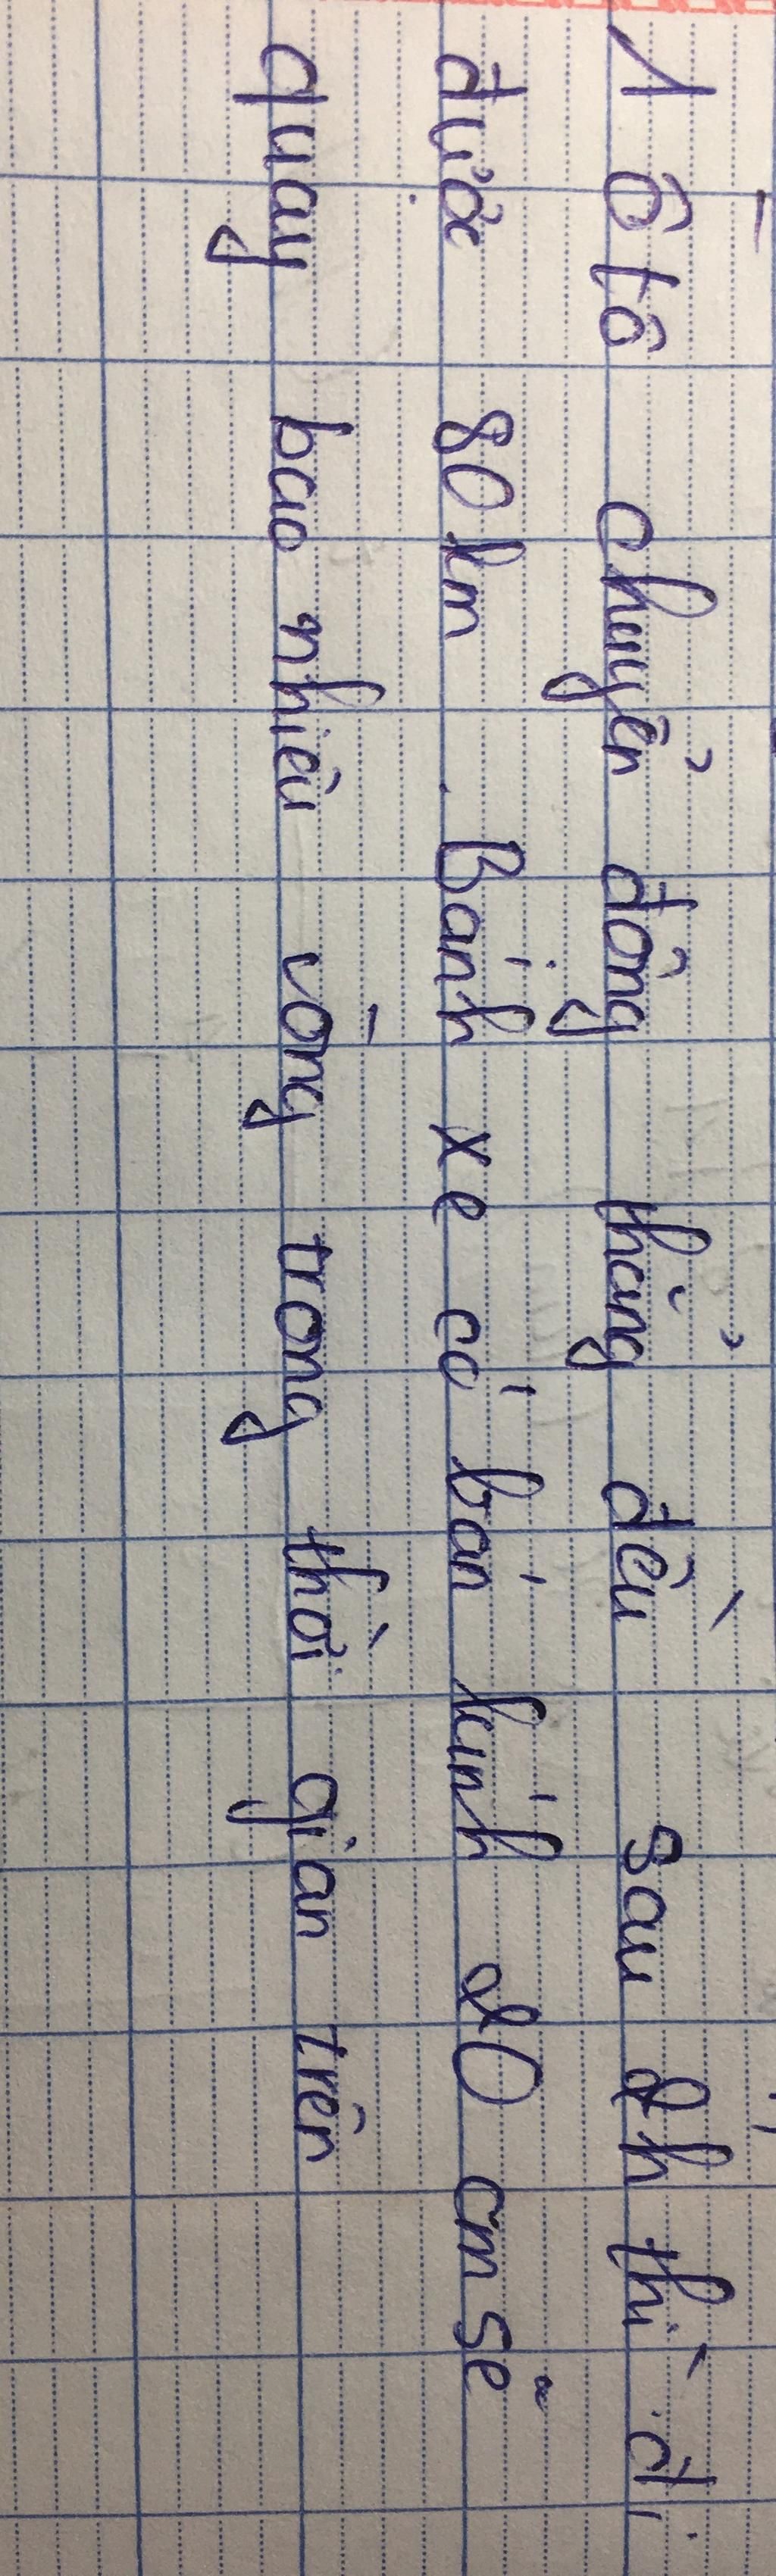 1 ô tô chuyển động thẳng đều sau 2h thì đi
được 80km. Bánh xe có bán kính 20 cm sẽ
quay bao nhiêu vòng trong thời gian trên